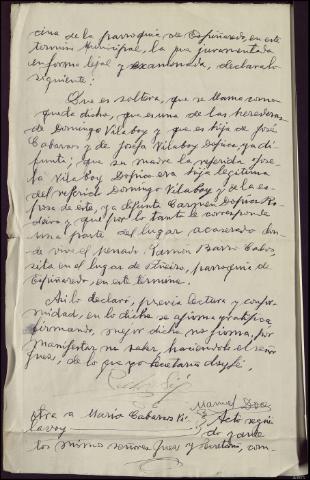 cina de la parroquia de Espiñaredo, en este
termino Municipal, la que juramentada
en forma legal y examinada, declara lo
siguiente:
Que es soltera, que se llama como
queda dicho, que es una de las herederas
de Domingo Vilaboy y que es hija de José
Cabarcos y de Josefa Vilaboy Dopico, ya di-
funta; que su madre la referida Jose-
fa Vilaboy Dopico era hija legítima
del referido Domingo Vilaboy y de la es-
posa de este, ya difunta Carmen Dopico Ro-
deiro y que por lo tanto le corresponde
una parte del lugar acasarado don-
de vive el penado Ramón Barro
sita en el lugar de parroquia de
Espiñaredo, en este termino.
Asi lo declaró, previa lectura y confor-
midad, en lo dicho se afirma y ratifica
firmando, mejor dicho no firma, por
manifestar no saber, haciendolo el señor
Juez, de lo que yo Secretario doy fé.
Manuel
otra a Maria Cabarcos Vi-
laboy Acto segui-
do y ante
los mismos señores Juez y Secretario, com-